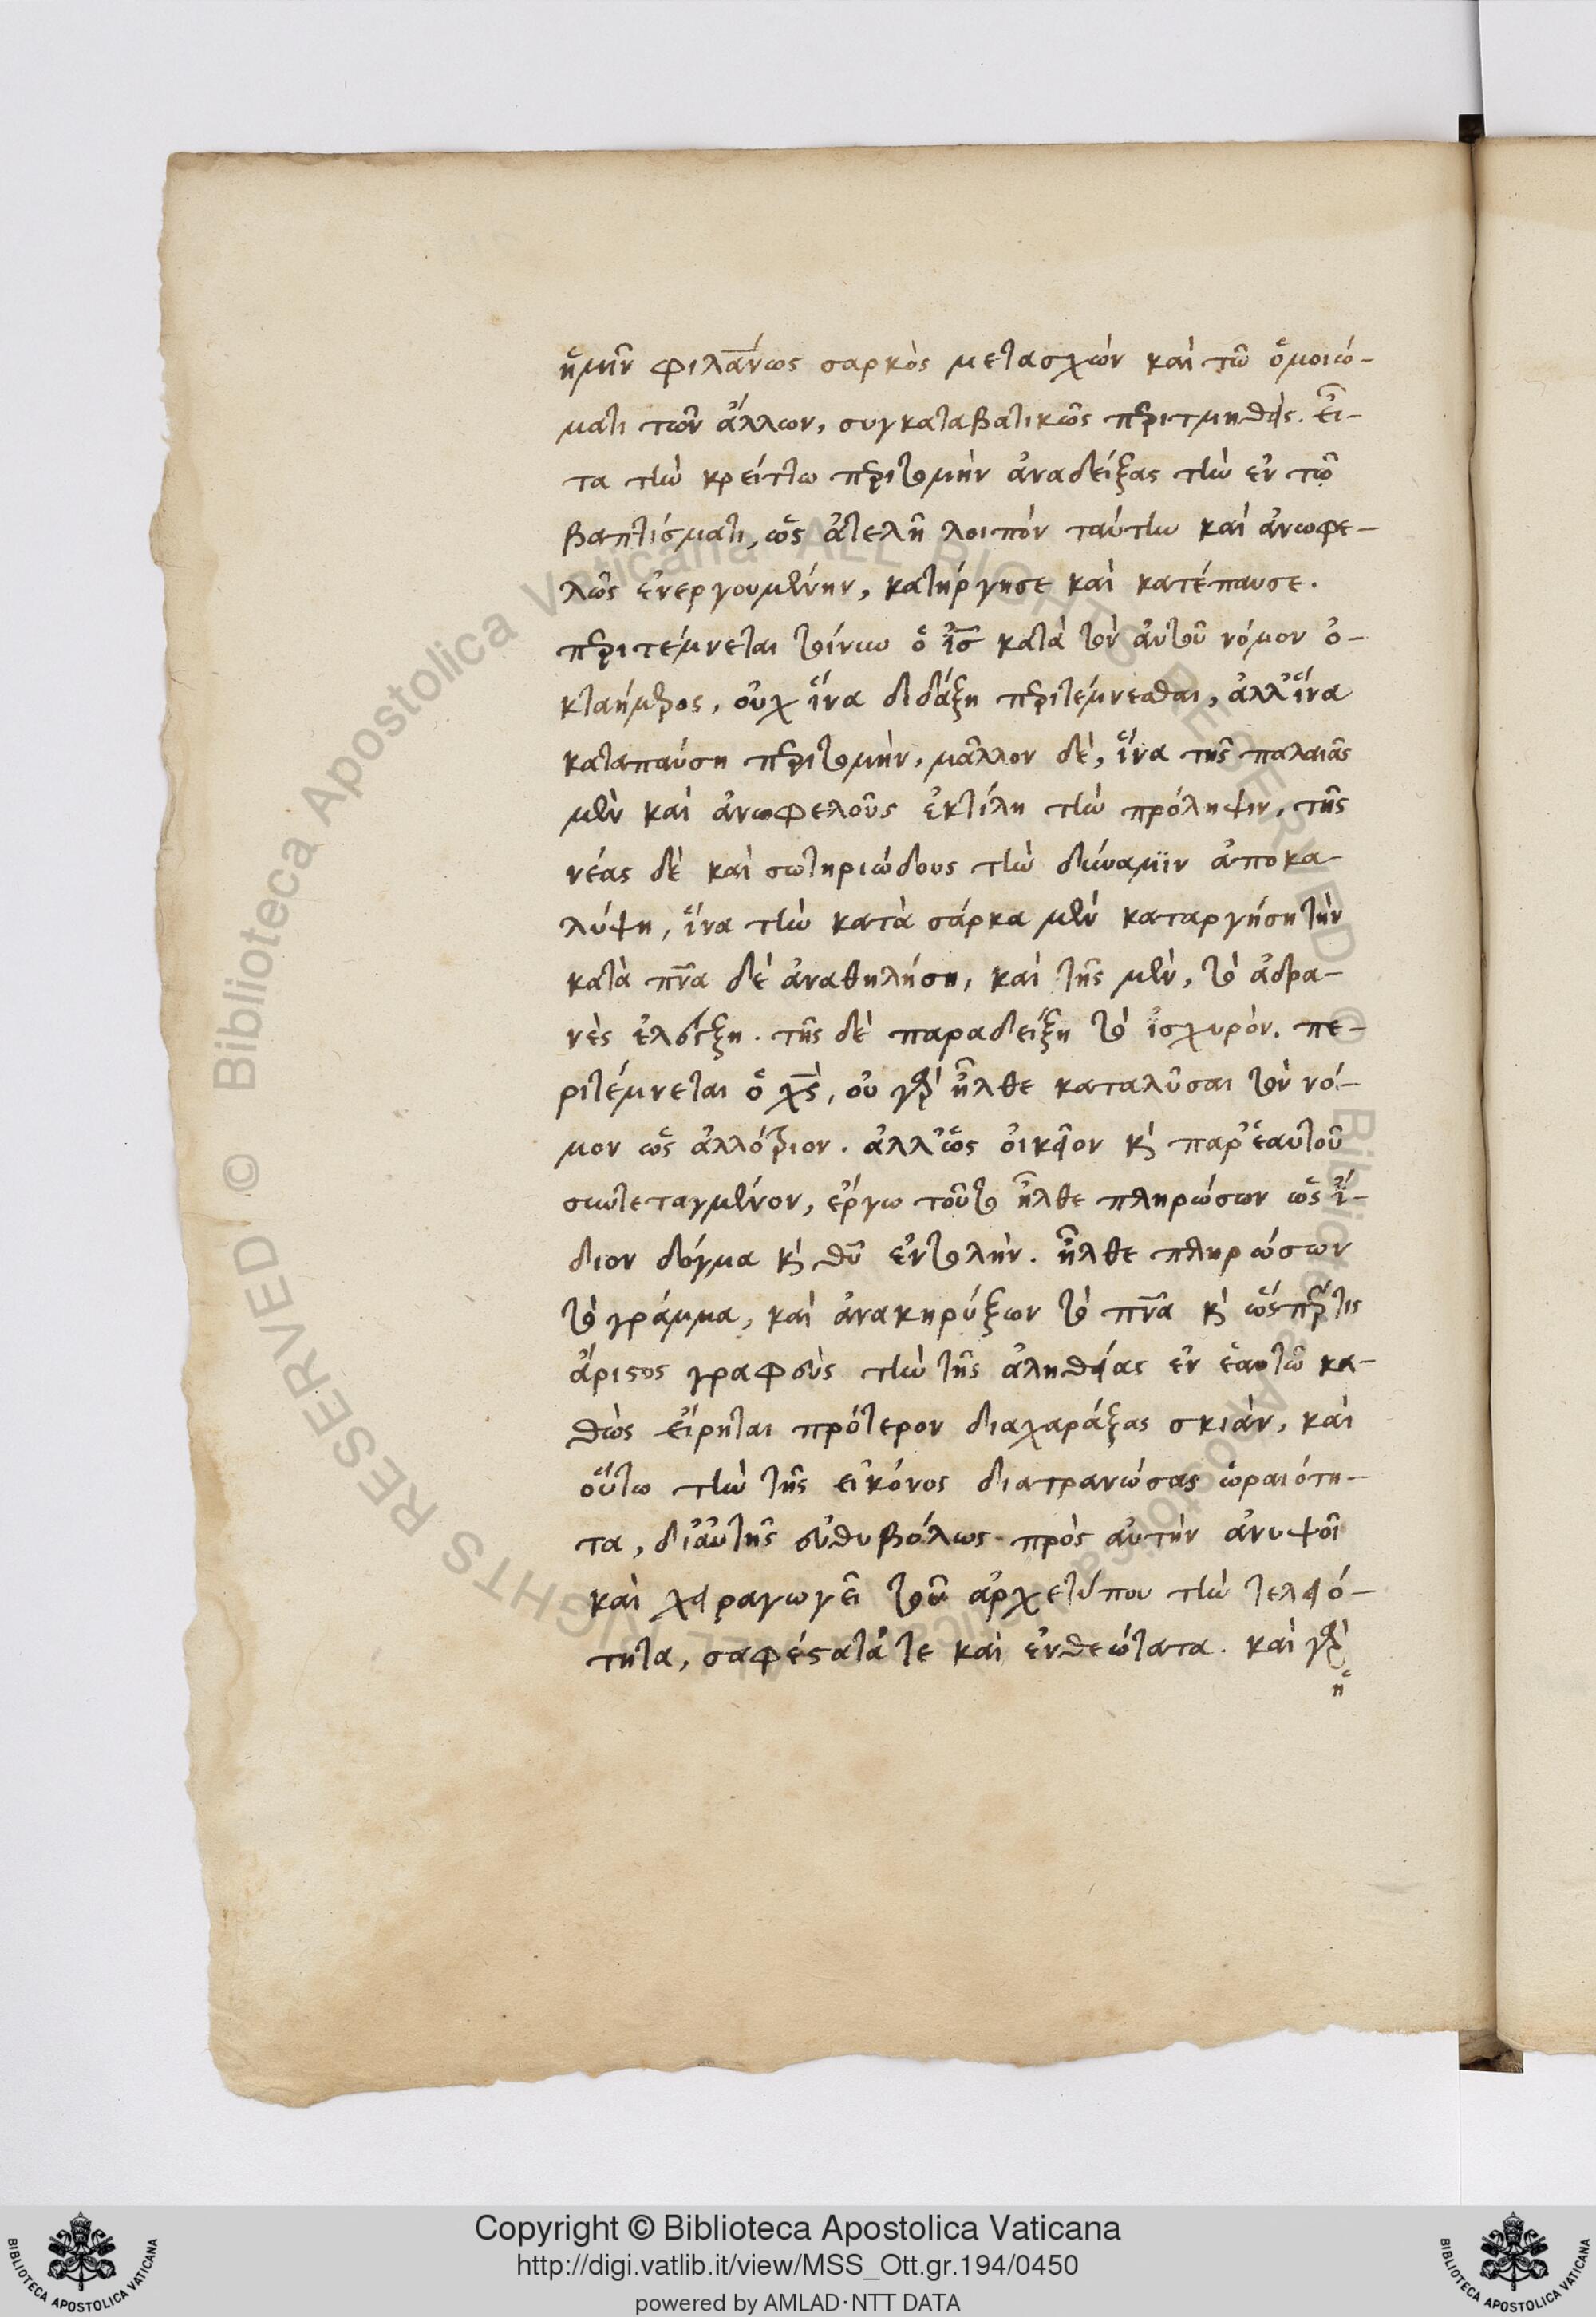 ἡμῖν φιλανως σαρκὸς μετασχὼν καὶ τῶ ὁμοιώ-
ματι τῶν ἄλλων, συγκαταβατικῶς περιτμηθείς. εἶ-
τα τὴν κρείττω περιτομὴν ἀναδείξας τὴν ἐν τῷ
βαπτίσματι, ὡς ἀτελῆ λοιπὸν ταύτην καὶ ἀνωφε-
λῶς ἐνεργουμένην, κατήργησε καὶ κατέπαυσε.
περιτέμνεται τοίνυν ὁ ις κατὰ τὸν αὐτοῦ νόμον ὀ-
κταήμερος, οὐχ ἵνα διδάξη περιτέμνεσθαι, ἀλλ' ἵνα
καταπαύση περιτομὴν, μᾶλλον δὲ, ἵνα τῆς παλαιᾶς
μὲν καὶ ἀνωφελοῦς ἐκτίλη τὴν πρόληψιν, τῆς
νέας δὲ καὶ σωτηριώδους τὴν δύναμϊν ἀποκα-
λύψη, ἵνα τὴν κατὰ σάρκα μὲν καταργήση τὴν
κατὰ πνα δὲ ἀναθηλήση, καὶ τῆς μὲν, τὸ ἀδρα-
νὲς ἐλέγξη. τῆς δὲ παραδείξη τὸ ἰσχυρόν. πε-
ριτέμνεται ὁ χς, οὐ γὰρ ἦλθε καταλῦσαι τὸν νό-
μον ὡς ἀλλότριον. ἀλλ' ὡς οἰκεῖον κ παρ' ἑαυτοῦ
συντεταγμένον, ἔργω τοῦτο ἦλθε πληρώσων ὡς ἴ-
διον δόγμα κ θυ ἐντολήν. ἦλθε πληρώσων
τὸ γράμμα, καὶ ἀνακηρύξων τὸ πνα κ ὥσπερ τις
ἄριστος γραφεὺς τὴν τῆς ἀληθείας ἐν ἑαυτῶ κα-
θὼς εἴρηται πρότερον διαχαράξας σκιὰν, καὶ
οὕτω τὴν τῆς εἰκόνος διατρανώσας ὡραιότη-
τα, δι' αὐτῆς εὐθυβόλως πρὸς αὐτὴν ἀνυψοῖ
καὶ χειραγωγεῖ τοῦ ἀρχετύπου τὴν τελειό-
τητα, σαφέστατά τε καὶ ἐνθεώτατα. καὶ γὰρ
ἡ
Copyright © Biblioteca Apostolica Vaticana
http://digi.vatlib.it/view/MSS_Ott.gr.194/0450
powered by AMLAD·NTT DATA